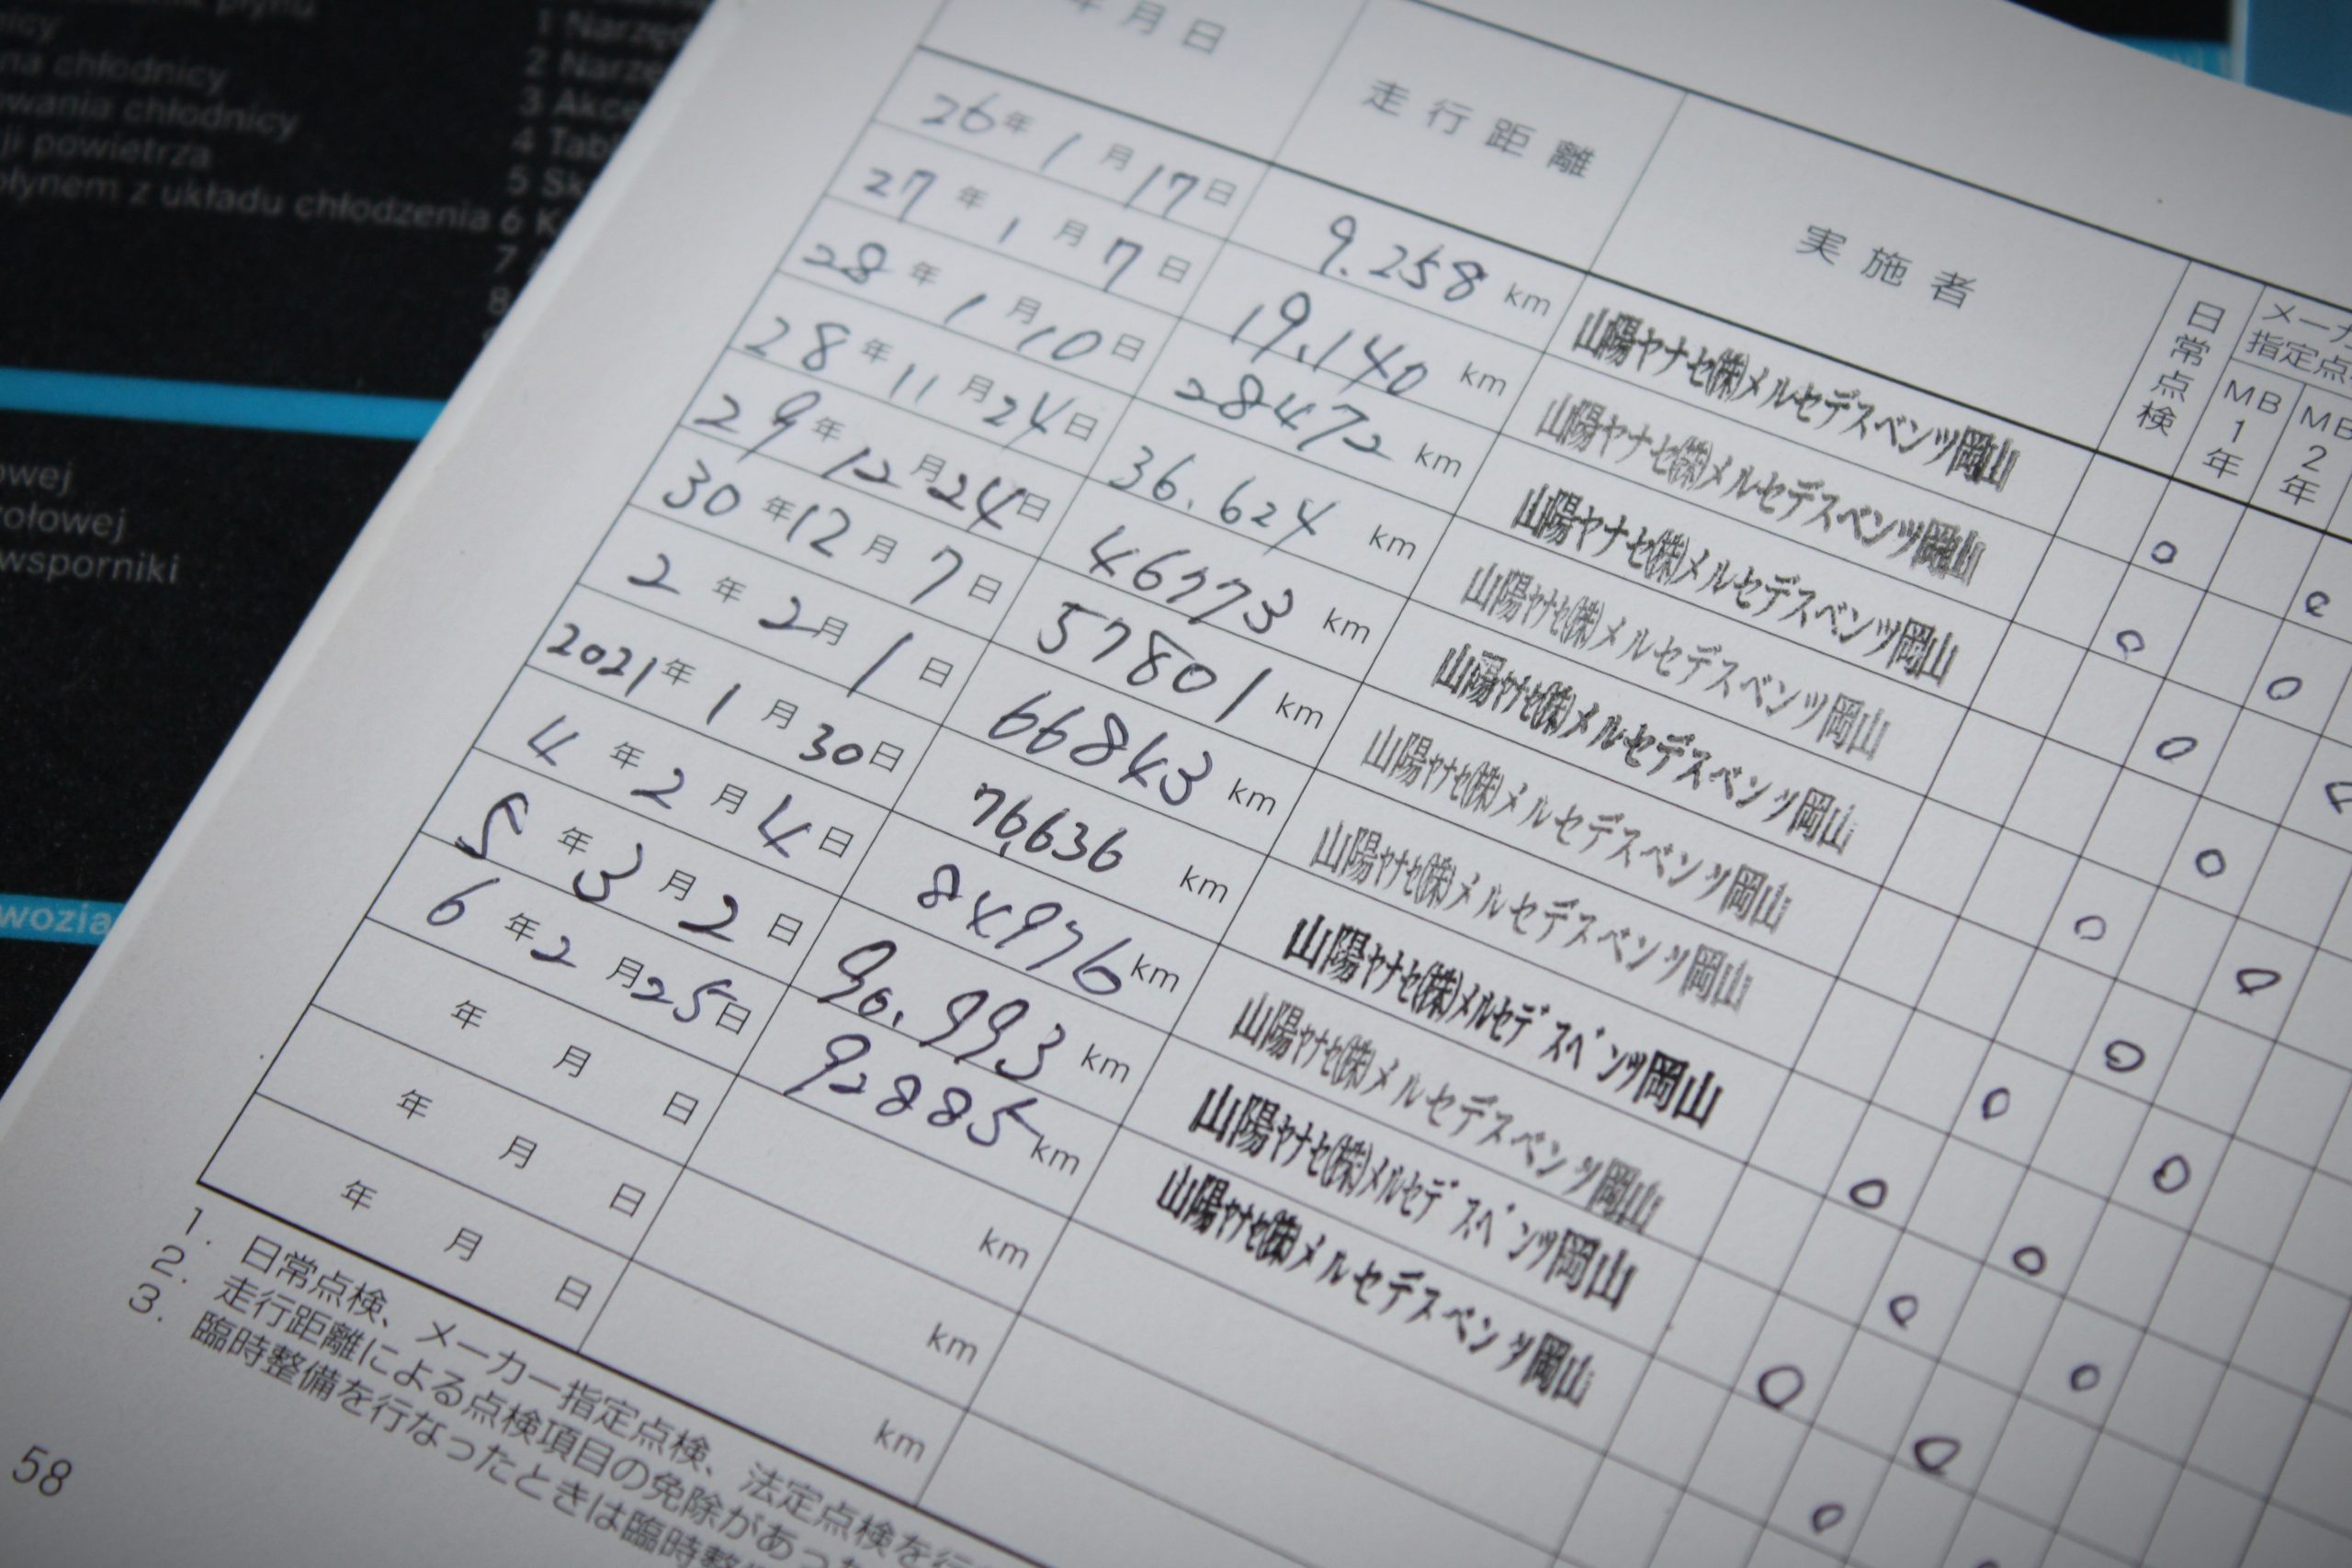 płynu
nicy
na chłodnicy
owania chłodnicy
ji powietrza
płynem z układu chłodzenia
1 Narzę
2 Narzę
3 Akce
4 Tab
5 Sk
6 K
7
8
owej
ołowej
wsporniki
wozia
年月日 走行距離 実施者 日常点検 メーカ 指定点 MB1年 MB2年
26年1月17日 9.258 km 山陽ヤナセ(株)メルセデスベンツ岡山
27年1月7日 19.140 km 山陽ヤナセ(株)メルセデスベンツ岡山
28年1月10日 28472 km 山陽ヤナセ(株)メルセデスベンツ岡山
28年11月24日 36.624 km 山陽ヤナセ(株)メルセデスベンツ岡山
29年12月24日 46773 km 山陽ヤナセ(株)メルセデスベンツ岡山
30年12月7日 57801 km 山陽ヤナセ(株)メルセデスベンツ岡山
2年2月1日 66843 km 山陽ヤナセ(株)メルセデスベンツ岡山
2021年1月30日 76,636 km 山陽ヤナセ(株)メルセデスベンツ岡山
4年2月4日 84976 km 山陽ヤナセ(株)メルセデスベンツ岡山
5年3月2日 90.993 km 山陽ヤナセ(株)メルセデスベンツ岡山
6年2月25日 92885 km 山陽ヤナセ(株)メルセデスベンツ岡山
年 月 日 km
年 月 日 km
年 月 日 km
1. 日常点検、メーカー指定点検、法定点検を行
2. 走行距離による点検項目の免除があった
3. 臨時整備を行なったときは臨時整
58